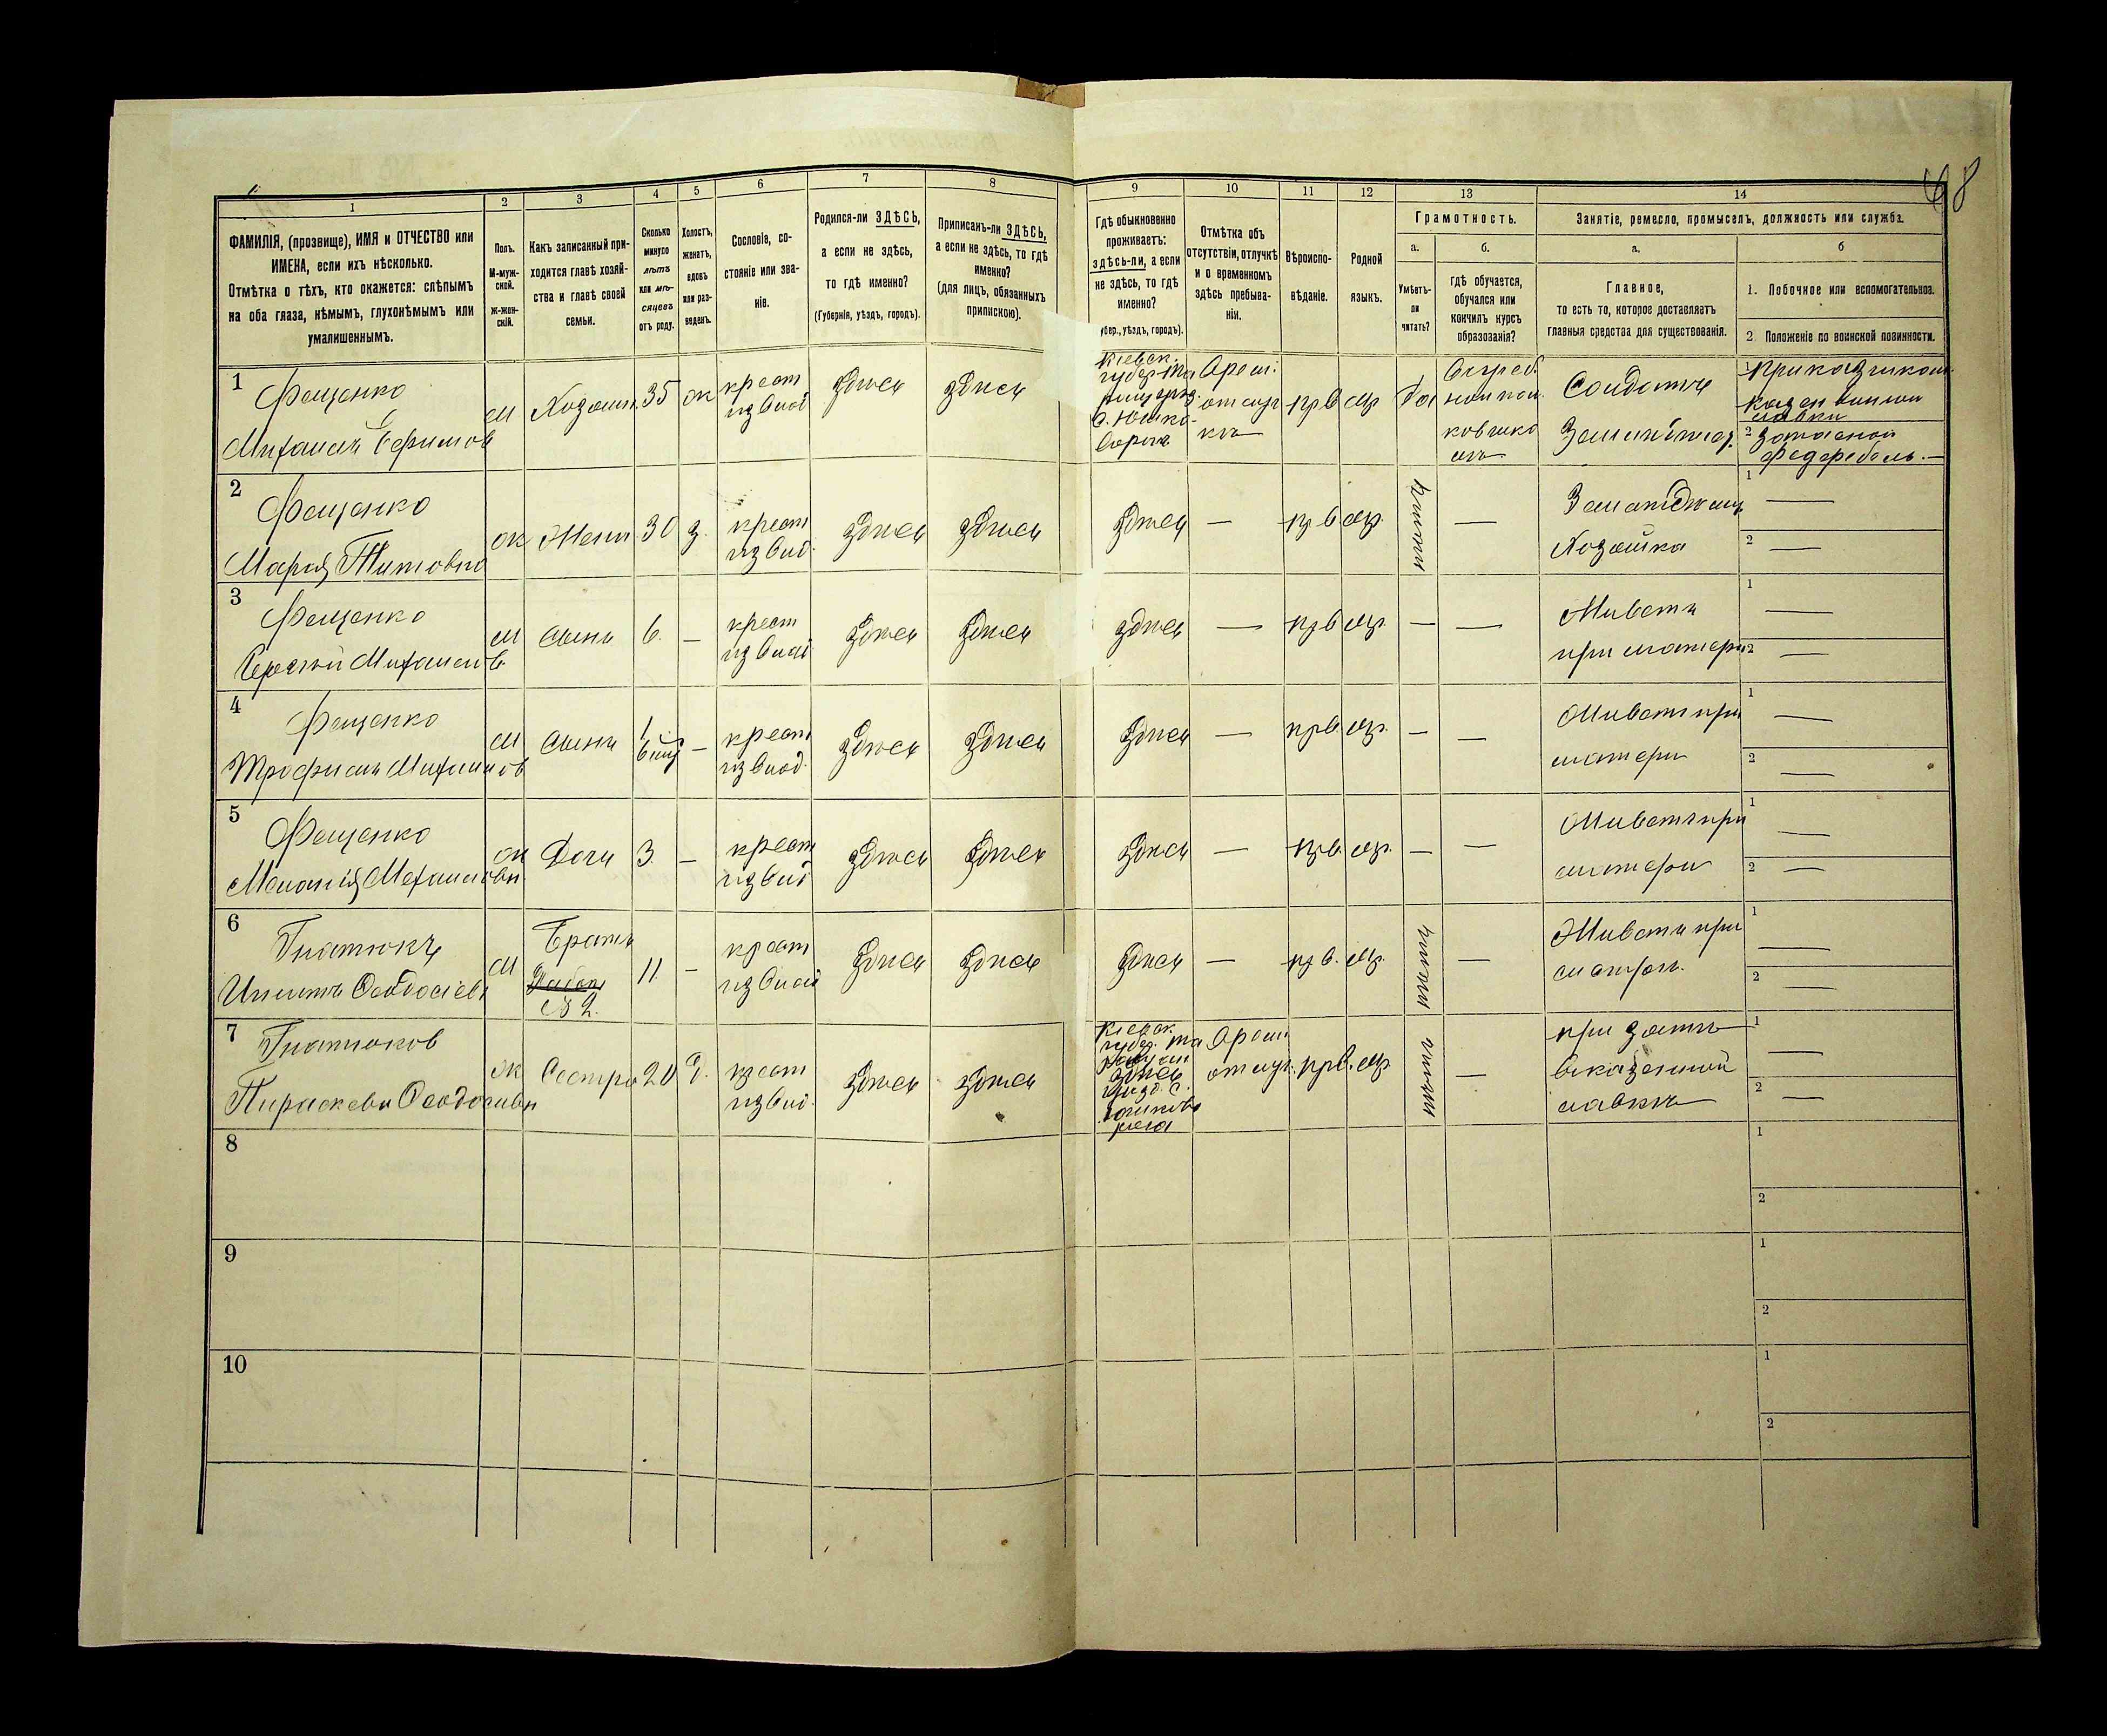 68
1 2 3 4 5 6 7 8 9 10 11 12 13 14
ФАМИЛІЯ, (прозвище), ИМЯ и ОТЧЕСТВО или
ИМЕНА, если ихъ нѣсколько.
Отмѣтка о тѣхъ, кто окажется: слѣпымъ
на оба глаза, нѣмымъ, глухонѣмымъ или
умалишеннымъ.
Полъ.
М-муж-
ской.
Ж-жен-
скій.
Какъ записанный при-
ходится главѣ хозяй-
ства и главѣ своей
семьи.
Сколько
минуло
лѣтъ
или мѣ-
сяцевъ
отъ роду.
Холостъ,
женатъ,
вдовъ
или раз-
веденъ.
Сословіе, со-
стояніе или зва-
ніе.
Родился-ли ЗДѢСЬ,
а если не здѣсь,
то гдѣ именно?
(Губернія, уѣздъ, городъ).
Приписанъ-ли ЗДѢСЬ,
а если не здѣсь, то гдѣ
именно?
(для лицъ, обязанныхъ
припискою).
Гдѣ обыкновенно
проживаетъ:
здѣсь-ли, а если
не здѣсь, то гдѣ
именно?
убер., уѣздъ, городъ).
Отмѣтка объ
отсутствіи, отлучкѣ
и о временномъ
здѣсь пребыва-
ніи.
Вѣроиспо-
вѣданіе.
Родной
языкъ.
Грамотность.
а.
Умѣетъ-
ли
читать?
б.
гдѣ обучается,
обучался или
кончилъ курсъ
образованія?
Занятіе, ремесло, промыселъ, должность или служба.
а.
Главное,
то есть то, которое доставляетъ
главныя средства для существованія.
б
1. Побочное или вспомогательное.
2 Положеніе по воинской повинности.
1
Фещенко
Михаилъ Ефимов
м
Хозяинъ
35
ж
крест
из влад
здесь
здесь
Киевск.
отлуч
кѣ
прв
мр
да
2
2
Фещенко
Мария Титовна
ж
Жена
30
з.
крест
из влад.
здесь
здесь
здесь
—
прв
мр.
—
Хозяйка
1 —
2 —
3
Фещенко
Сергей Михаилов
м
сынъ
6.
—
крест
из влад
здесь
здесь
здесь
—
прв
мр.
—
—
Живетъ
при матери
1 —
2 —
4
Фещенко
Трофимъ Михаилов
м
сынъ
1
—
крест
из влад.
здесь
здесь
здесь
—
прв
мр.
—
—
Живетъ при
матери
1 —
2 —
5
Фещенко
Меланія Михаиловн
ж
Дочь
3
—
крест
из влад
здесь
здесь
здесь
—
прв.
мр.
—
—
Живетъ при
матери
1 —
2 —
6
Гнатюкъ
Феодосіевъ
м
Братъ
№ 2.
11
—
крест
из влад
здесь
здесь
здесь
—
прв.
мр.
—
Живетъ при
1 —
2 —
7
Гнатюков
Параскева Феодосиевн
ж
Сестра
20
д.
крест
из влад.
здесь
здесь
Киевск.
отлуч.
прв.
мр
—
при зятѣ
в казенной
лавкѣ
1 —
2 —
8
1
2
9
1
2
10
1
2